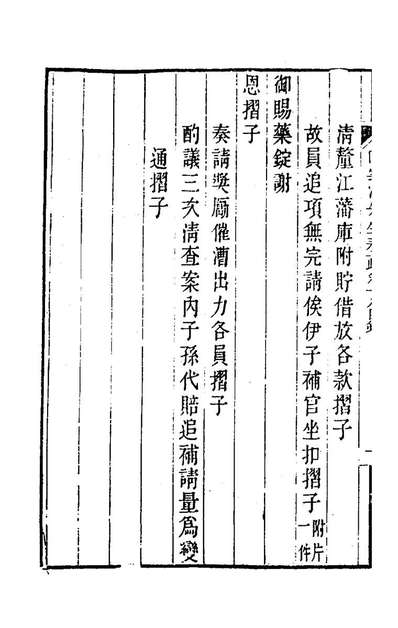 清釐江藩庫附貯借放各款摺子
故員追項無完請俟伊子補官坐扣摺子附片一件
御賜藥錠謝
恩摺子
奏請獎勵催漕出力各員摺子
酌議三次清查案內子孫代賠追補請量爲變
通摺子